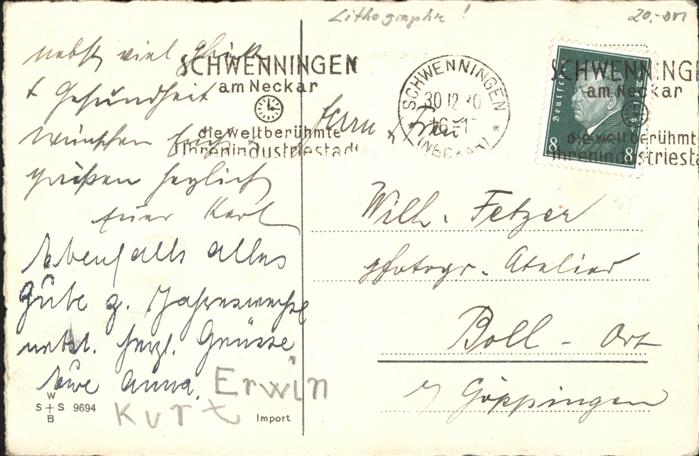 Lithographie!
20,- DM
nebst viel Glück
+ Gesundheit
wünschen Euch
grüßen herzlich
Euer Karl
Ebenfalls alles
Gute z. Jahreswechsel
nebst. herzl. Grüsse
Eure Anna.
Erwin
Kurt
SCHWENNINGEN
am Neckar
die weltberühmte
Uhrenindustriestadt
SCHWENNINGEN
30.12.30
(NECKAR)
SCHWENNINGEN
am Neckar
die weltberühmte
Uhrenindustriestadt
Deutsches
8 8
Herrn & Frau
Wilh. Fetzer
photogr. Atelier
Boll - Ort
b/ Göppingen
W
S+S 9694
B
Import